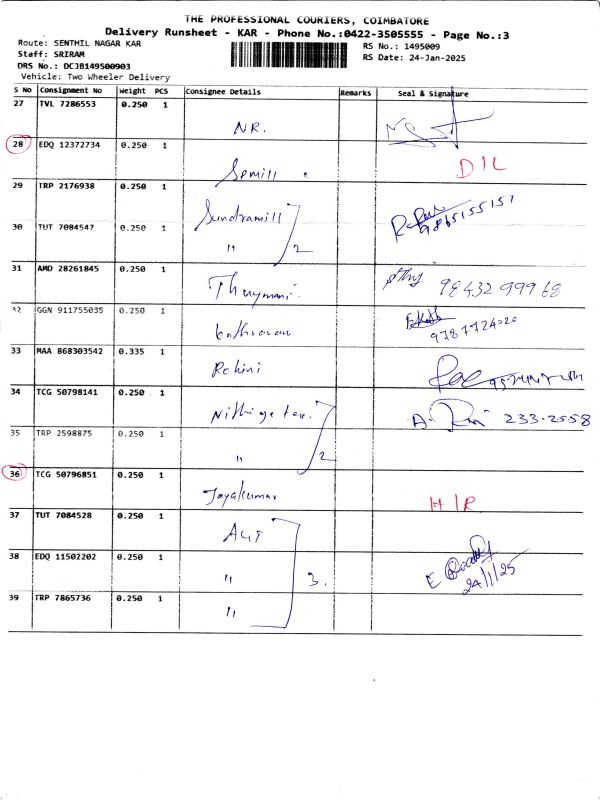 THE PROFESSIONAL COURIERS, COIMBATORE
Delivery Runsheet - KAR - Phone No.:0422-3505555 - Page No.:3
Route: SENTHIL NAGAR KAR
Staff: SRIRAM
DRS No.: DCJB149500903
Vehicle: Two Wheeler Delivery
RS No.: 1495009
RS Date: 24-Jan-2025
S No Consignment No Weight PCS Consignee Details Remarks Seal & Signature
27 TVL 7286553 0.250 1 NR.
28 EDQ 12372734 0.250 1 D/L
29 TRP 2176938 0.250 1 Sundramill 9865155151
30 TUT 7084547 0.250 1 " 2
31 AMD 28261845 0.250 1 98432 99968
32 GGN 911755035 0.250 1 Kathiravan 9787724020
33 MAA 868303542 0.335 1 Rohini
34 TCG 50798141 0.250 1 233-2558
35 TRP 2598875 0.250 1 " 2
36 TCG 50796851 0.250 1 Jayakumar H/R
37 TUT 7084528 0.250 1
38 EDQ 11502202 0.250 1 " 3. 24/1/25
39 TRP 7865736 0.250 1 "